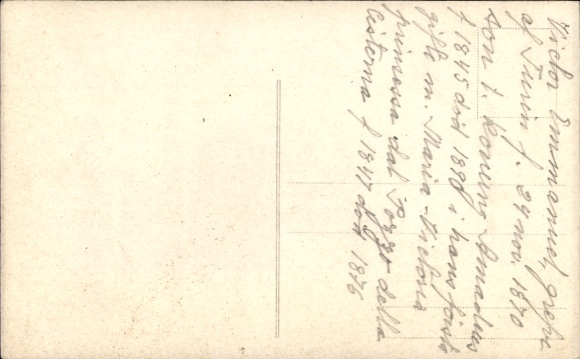 Victor Emmanuel, greve
af Turin f. 24 nov. 1870
son t. konung Amadeus
f 1845 död 1890 i hans första
gifte m. Maria-Victoria
prinsessa dal Pozzo della
Cisterna f 1847 död 1876